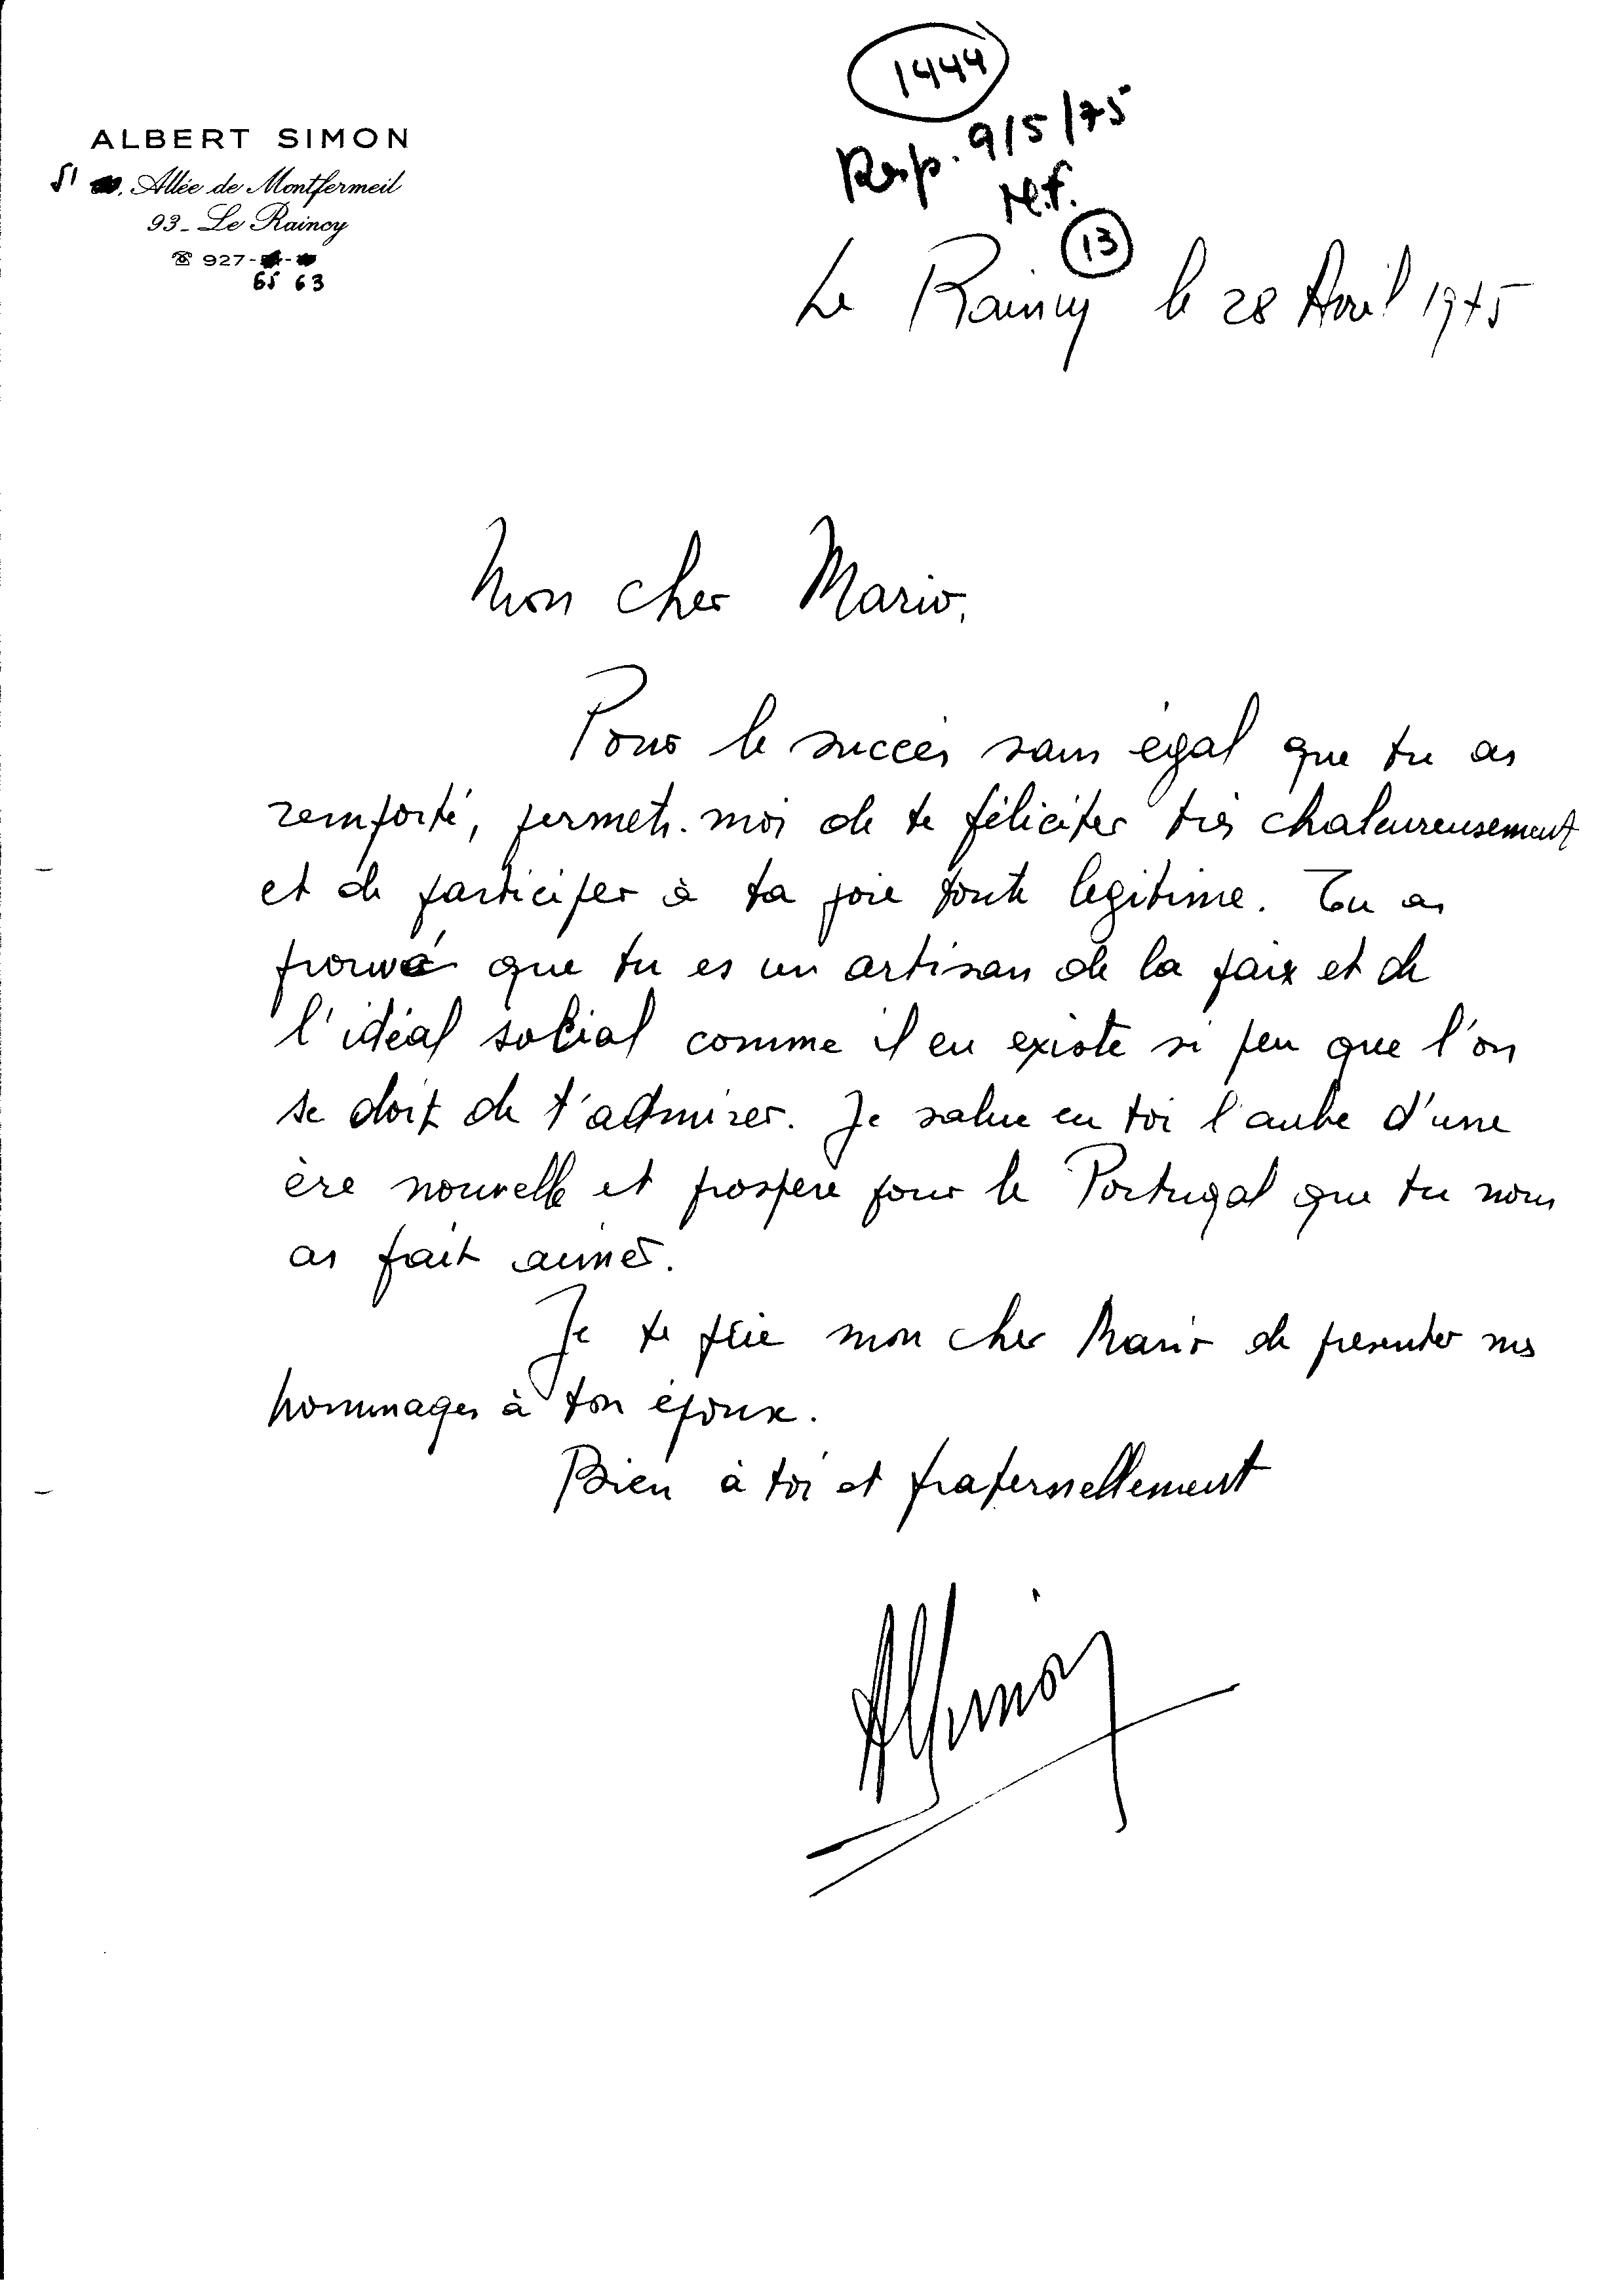 1444
Resp. 9/5/75
M.F.
13
ALBERT SIMON
51, Allée de Montfermeil
93_ Le Raincy
☎ 927-
65 63
Le Raincy le 28 Avril 1975
Mon cher Mario,
Pour le succès sans égal que tu as
remporté, permets-moi de te féliciter très chaleureusement
et de participer à ta joie toute legitime. Tu as
prouvé que tu es un artisan de la paix et de
l'idéal social comme il en existe si peu que l'on
se doit de t'admirer. Je salue en toi l'aube d'une
ère nouvelle et prospere pour le Portugal que tu nous
as fait aimer.
Je te prie mon cher Mario de presenter mes
hommages à ton épouse.
Bien à toi et fraternellement
ASimon